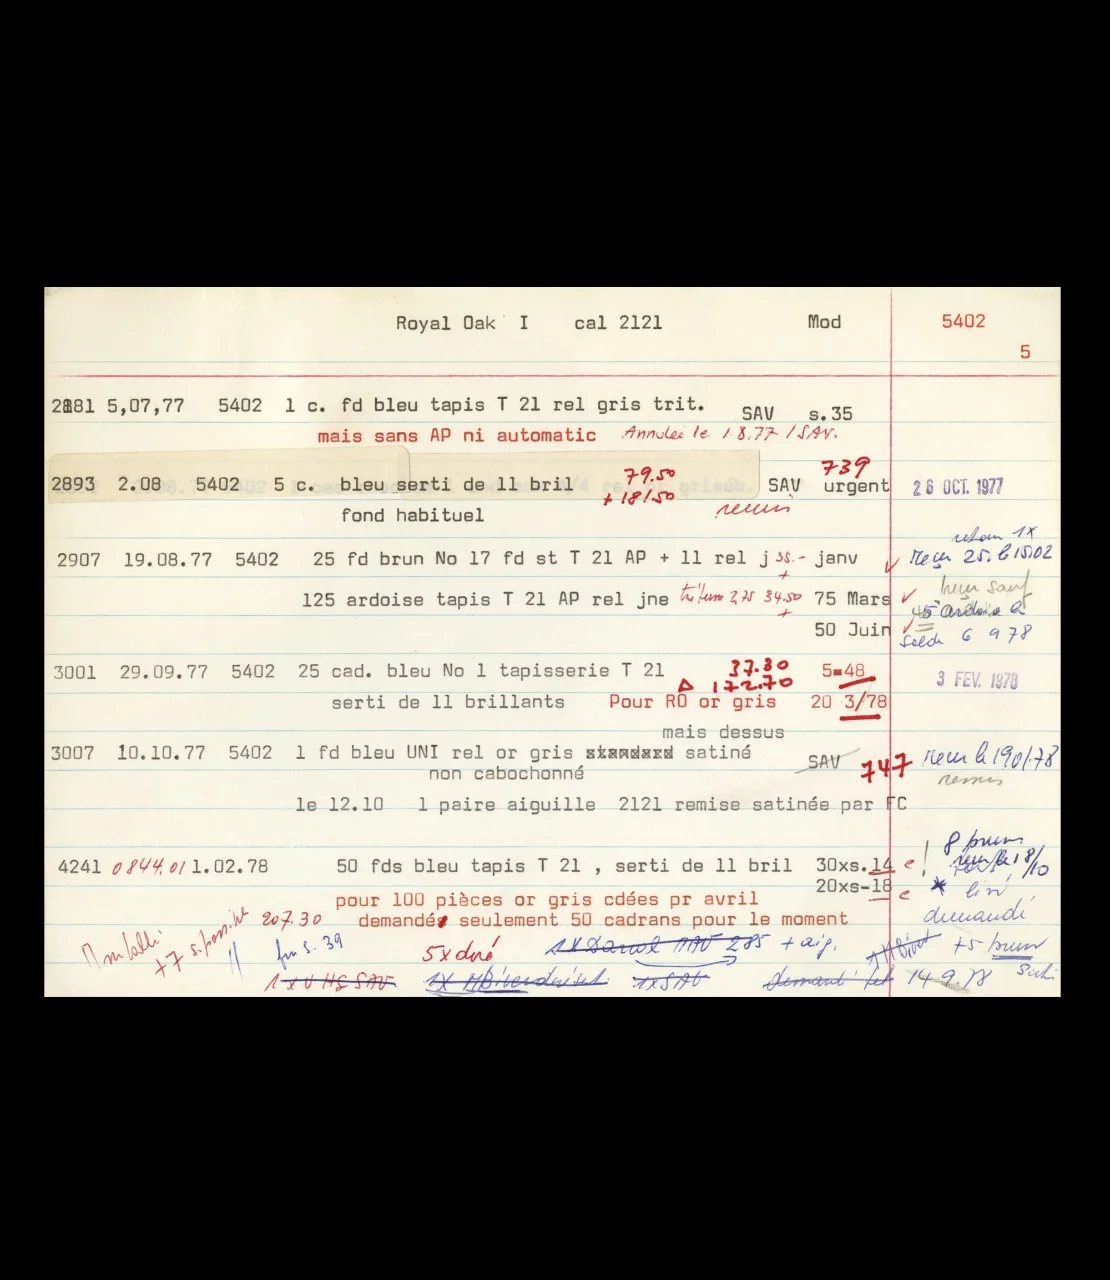 Royal Oak I cal 2121 Mod 5402
5
2881 5,07,77 5402 1 c. fd bleu tapis T 21 rel gris trit. SAV s.35
mais sans AP ni automatic Annulée le 1.8.77 / SAV.
739
2893 2.08 5402 5 c. bleu serti de 11 bril 79.50 SAV urgent 26 OCT. 1977
+ 181.50
fond habituel remis
retour 1x
2907 19.08.77 5402 25 fd brun No 17 fd st T 21 AP + 11 rel j 55.- janv Reçu 25. le 15.02
+
reçu sauf
125 ardoise tapis T 21 AP rel jne tritium 2,75 34.50 75 Mars
+
50 Juin solde 6 9 78
3001 29.09.77 5402 25 cad. bleu No 1 tapisserie T 21 37.30 5=48 3 FEV. 1978
172.70
serti de 11 brillants Pour RO or gris 20 3/78
mais dessus
3007 10.10.77 5402 1 fd bleu UNI rel or gris standard satiné SAV 747 Reçu le 19 01.78
non cabochonné remis
le 12.10 1 paire aiguille 2121 remise satinée par FC
8 pieces
4241 0844.01 1.02.78 50 fds bleu tapis T 21 , serti de 11 bril 30xs.14 e ! 18/10
20xs-18 e livré
pour 100 pièces or gris cdées pr avril
207.30 demandés seulement 50 cadrans pour le moment demandé
+7 s. possible fin s. 39 5x doré 285 + aig. +5
1x SAV 1x SAV 14 9.78